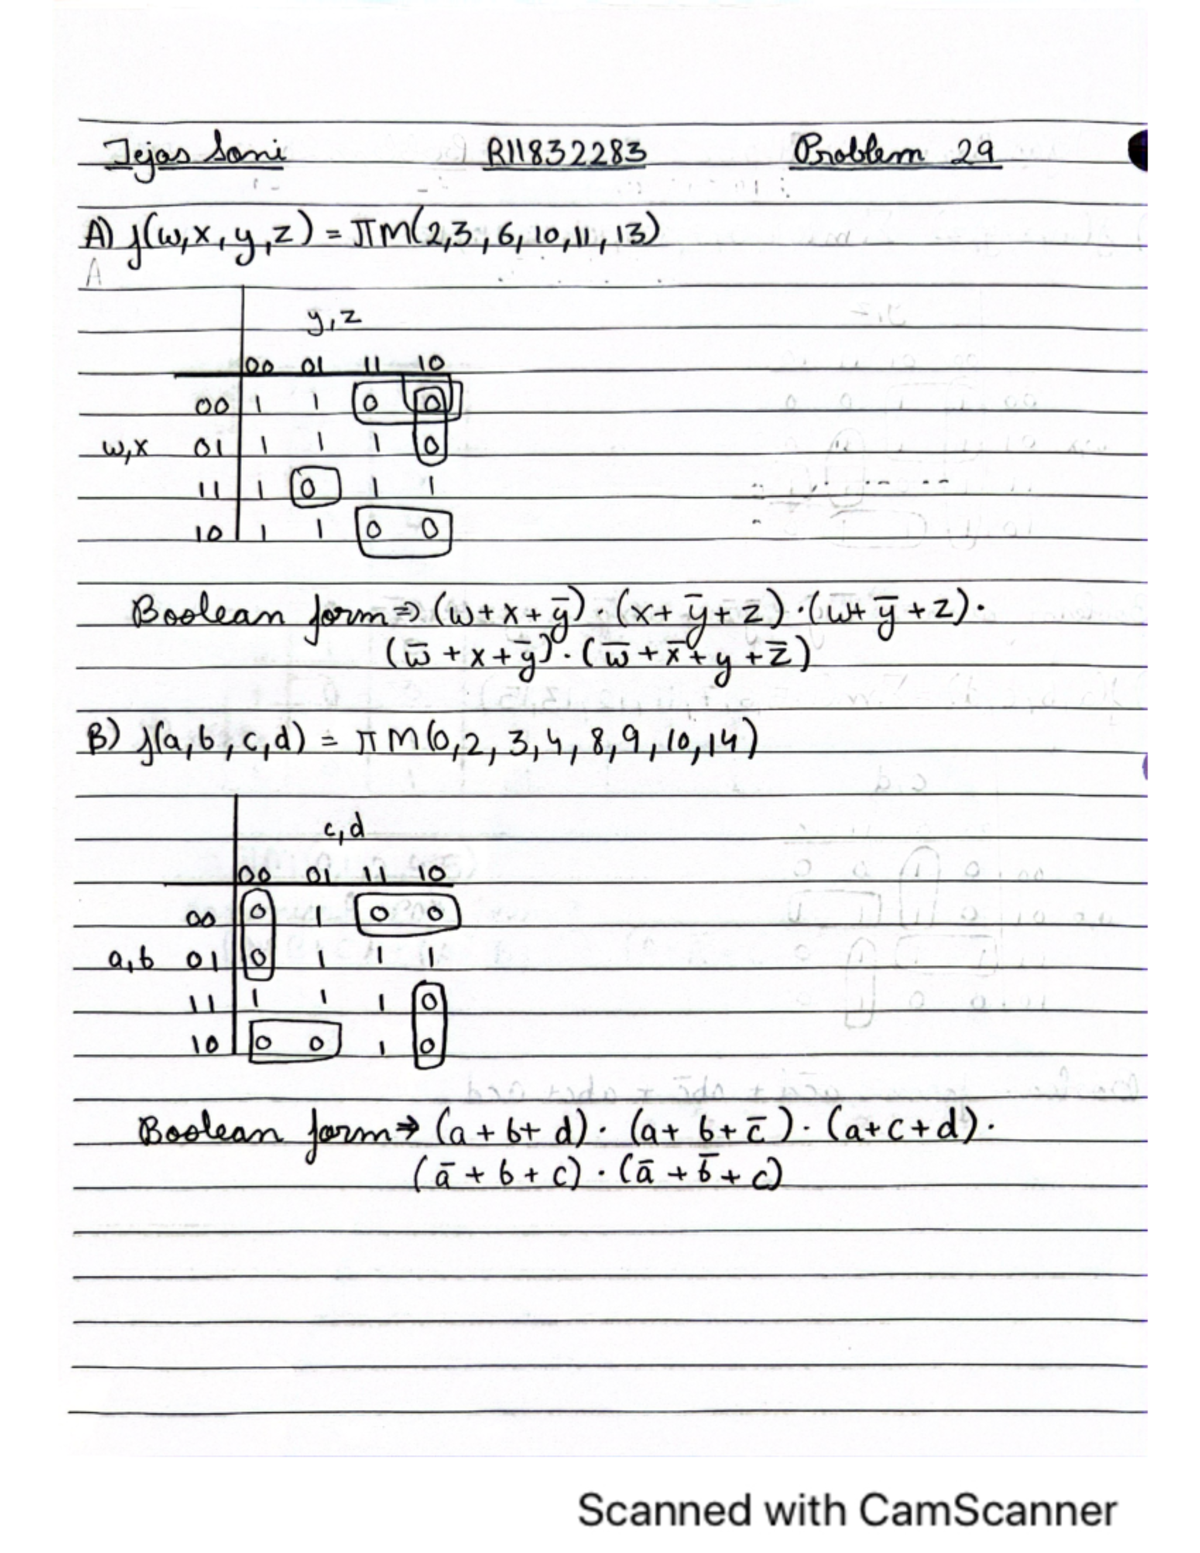 Tejas Soni R11832283 Problem 29
A) f(w,x,y,z) = πM(2,3,6,10,11,13)
A
y,z
00 01 11 10
00 1 1 0 0
w,x 01 1 1 1 0
11 1 0 1 1
10 1 1 0 0
Boolean form ⇒ (w+x+y̅)·(x+y̅+z)·(w+y̅+z)·
(w̅+x+y̅)·(w̅+x̅+y+z̅)
B) f(a,b,c,d) = πM(0,2,3,4,8,9,10,14)
c,d
00 01 11 10
00 0 1 0 0
a,b 01 0 1 1 1
11 1 1 1 0
10 0 0 1 0
Boolean form → (a+b+d)·(a+b+c̅)·(a+c+d)·
(a̅+b+c)·(a̅+b̅+c)
Scanned with CamScanner